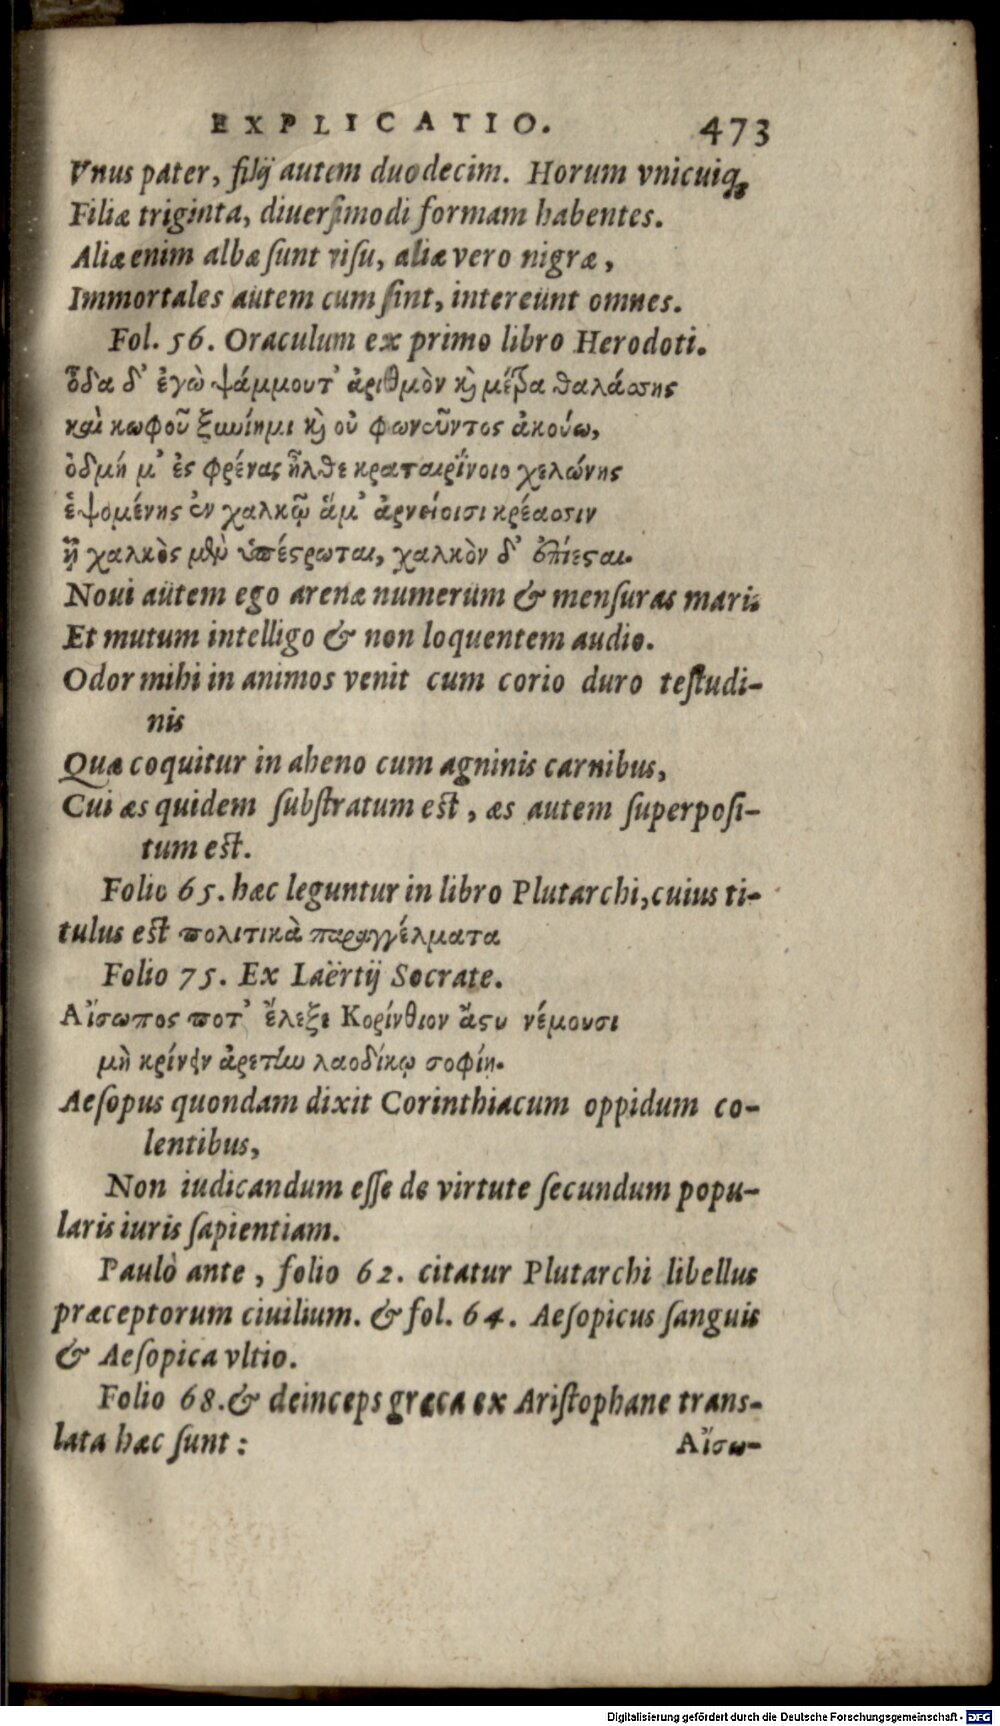 EXPLICATIO. 473
Vnus pater, filij autem duodecim. Horum vnicuiq́;
Filiæ triginta, diuersimodi formam habentes.
Aliæ enim albæ sunt visu, aliæ vero nigræ,
Immortales autem cum sint, intereunt omnes.
Fol. 56. Oraculum ex primo libro Herodoti.
οἶδα δ' ἐγὼ ψάμμου τ' ἀριθμὸν κὶ μέτρα θαλάσσης
καὶ κωφοῦ ξυνίημι κὶ οὐ φωνοῦντος ἀκούω,
ὀδμή μ' ἐς φρένας ἦλθε κραταιρίνοιο χελώνης
ἑψομένης ἐν χαλκῷ ἅμ' ἀρνείοισι κρέασσιν
ᾗ χαλκὸς μὲν ὑπέστρωται, χαλκὸν δ' ἐπίεσαι.
Noui autem ego arenæ numerum & mensuras maris
Et mutum intelligo & non loquentem audio.
Odor mihi in animos venit cum corio duro testudi-
nis
Quæ coquitur in aheno cum agninis carnibus,
Cui æs quidem substratum est, æs autem superposi-
tum est.
Folio 65. hæc leguntur in libro Plutarchi, cuius ti-
tulus est πολιτικὰ παραγγέλματα
Folio 75. Ex Laërtij Socrate.
Αἴσωπος ποτ' ἔλεξε Κορίνθιον ἄστυ νέμουσι
μὴ κρίνειν ἀρετὴν λαοδίκῳ σοφίῃ.
Aesopus quondam dixit Corinthiacum oppidum co-
lentibus,
Non iudicandum esse de virtute secundum popu-
laris iuris sapientiam.
Paulò ante, folio 62. citatur Plutarchi libellus
præceptorum ciuilium. & fol. 64. Aesopicus sanguis
& Aesopica vltio.
Folio 68. & deinceps græca ex Aristophane trans-
lata hæc sunt: Αἴσω-
Digitalisierung gefördert durch die Deutsche Forschungsgemeinschaft - DFG